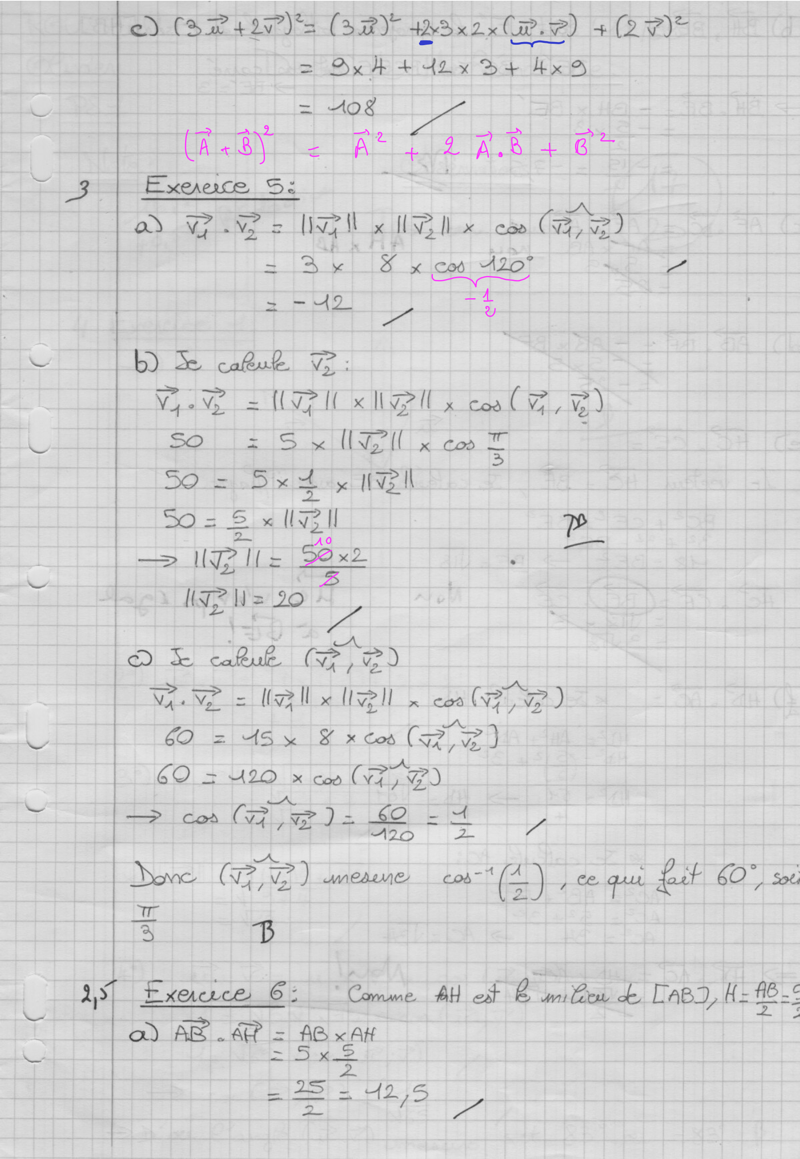 c) (3u⃗ + 2v⃗)² = (3u⃗)² + 2×3×2×(u⃗ . v⃗) + (2v⃗)²
= 9×4 + 12×3 + 4×9
= 108
(A⃗ + B⃗)² = A⃗² + 2 A⃗.B⃗ + B⃗²
3 Exercice 5:
a) v₁⃗ . v₂⃗ = ||v₁⃗|| × ||v₂⃗|| × cos (v₁⃗, v₂⃗)
= 3 × 8 × cos 120°
= -12 -1/2
b) Je calcule v₂⃗ :
v₁⃗ . v₂⃗ = ||v₁⃗|| × ||v₂⃗|| × cos (v₁⃗, v₂⃗)
50 = 5 × ||v₂⃗|| × cos π/3
50 = 5 × 1/2 × ||v₂⃗||
50 = 5/2 × ||v₂⃗||
10
→ ||v₂⃗|| = 50×2/5
||v₂⃗|| = 20
TB
c) Je calcule (v₁⃗, v₂⃗)
v₁⃗ . v₂⃗ = ||v₁⃗|| × ||v₂⃗|| × cos (v₁⃗, v₂⃗)
60 = 15 × 8 × cos (v₁⃗, v₂⃗)
60 = 120 × cos (v₁⃗, v₂⃗)
→ cos (v₁⃗, v₂⃗) = 60/120 = 1/2
Donc (v₁⃗, v₂⃗) mesure cos⁻¹(1/2), ce qui fait 60°, soi
π/3 B
2,5 Exercice 6: Comme AH est le milieu de [AB], H = AB/2 = 5/2
a) AB⃗ . AH⃗ = AB × AH
= 5 × 5/2
= 25/2 = 12,5